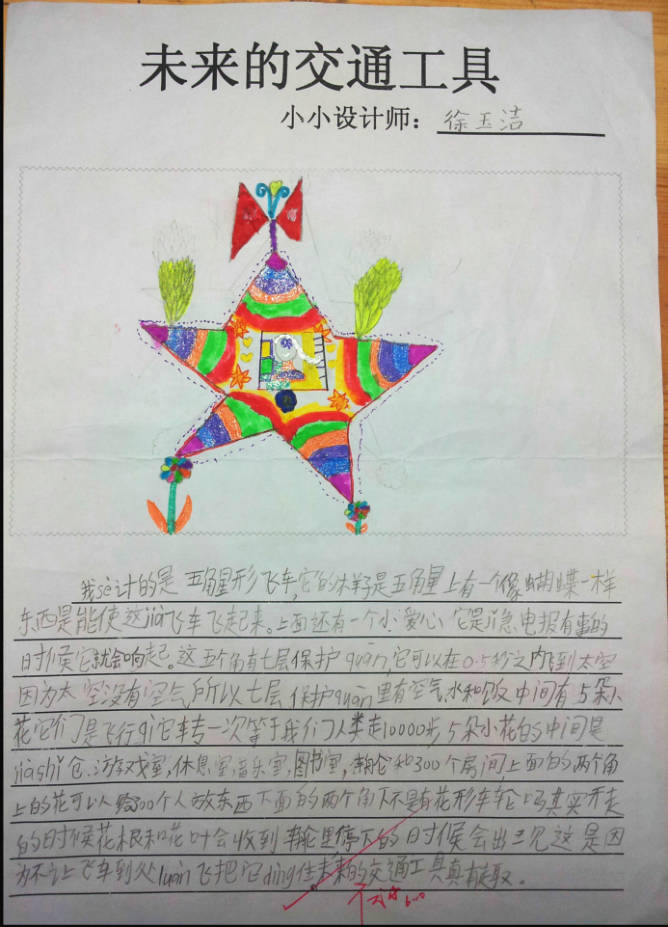 未来的交通工具
小小设计师：徐玉洁
我sè计的是五角星形飞车，它的样子是五角星上有一个像蝴蝶一样
东西是能使这jià飞车飞起来。上面还有一个小爱心，它是jǐn急电报有事的
时候它就会响起。这五个角有七层保护quān，它可以在0.5秒之内飞到太空
因为太空没有空气所以七层保护quān里有空气、水和饭中间有5朵小
花它们是飞行qì它转一次等于我们人类走10000步5朵小花的中间是
jiàshǐ仓、游戏室，休息室，音乐室，图书室，和300个房间上面的两个角
上的花可以给300个人放东西下面的两个角下不是有花形车轮吗其实开走
的时候花根和花叶会收到车轮里停下的时候会出现这是因
为不让飞车到处luàn飞把它dìng住未来的交通工具真有趣。